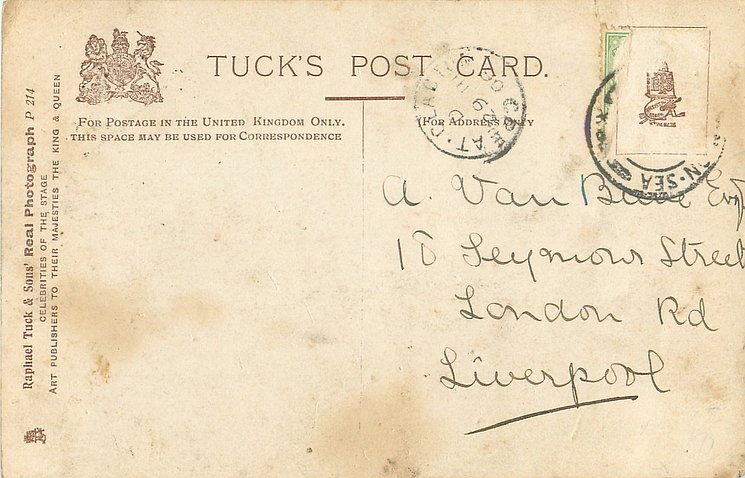 TUCK'S POST CARD.
FOR POSTAGE IN THE UNITED KINGDOM ONLY.
THIS SPACE MAY BE USED FOR CORRESPONDENCE
(FOR ADDRESS ONLY
GREAT CLACTON
N·SEA
A. Van Esq
18 Seymour Street
London Rd
Liverpool
Raphael Tuck & Sons' Real Photograph P 214
CELEBRITIES OF THE STAGE
ART PUBLISHERS TO THEIR MAJESTIES THE KING & QUEEN